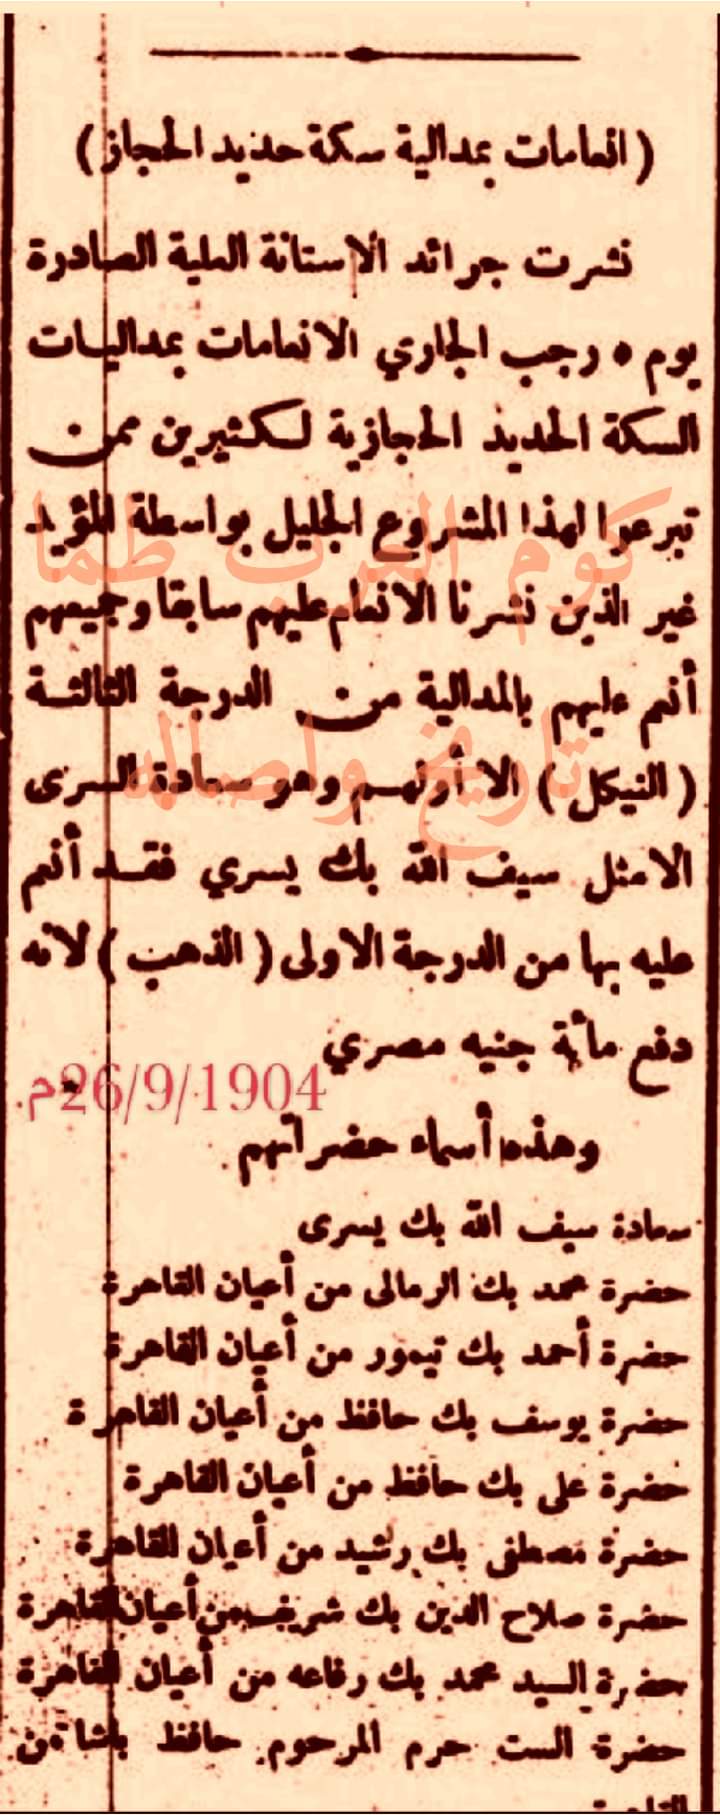 ( انعامات بمدالية سكة حديد الحجاز )
نشرت جرائد الاستانة العلية الصادرة
يوم ٥ رجب الجاري الانعامات بمداليات
السكة الحديد الحجازية لكثيرين ممن
تبرعوا لهذا المشروع الجليل بواسطة المؤيد
غير الذين نشرنا الانعام عليهم سابقا وجميعهم
أنعم عليهم بالمدالية من الدرجة الثالثة
( النيكل ) الا أولهم وهو سعادة السرى
الامثل سيف الله بك يسري فقد أنعم
عليه بها من الدرجة الاولى ( الذهب ) لانه
دفع مائة جنيه مصري
وهذه أسماء حضراتهم
سعادة سيف الله بك يسرى
حضرة محمد بك الرمالى من أعيان القاهرة
حضرة أحمد بك تيمور من أعيان القاهرة
حضرة يوسف بك حافظ من أعيان القاهرة
حضرة على بك حافظ من أعيان القاهرة
حضرة مصطفى بك رشيد من أعيان القاهرة
حضرة صلاح الدين بك شريف من أعيان القاهرة
حضرة السيد محمد بك رفاعه من أعيان القاهرة
حضرة الست حرم المرحوم حافظ باشا من
كوم العرب طما
تاريخ واصاله
26/9/1904م